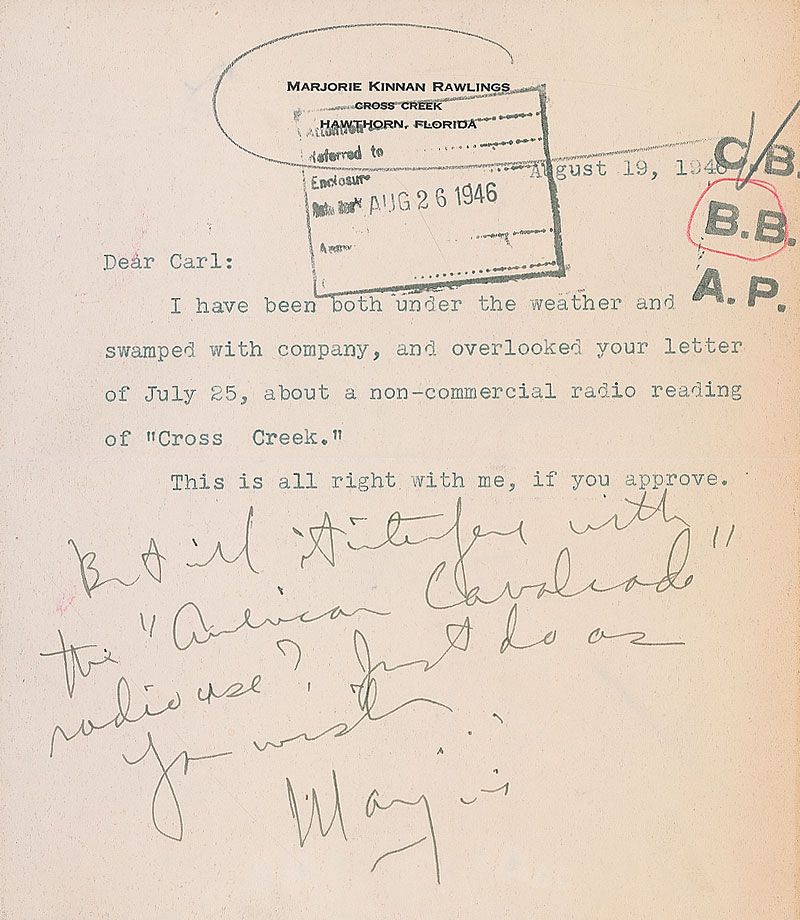 MARJORIE KINNAN RAWLINGS
CROSS CREEK
HAWTHORN, FLORIDA
Attention
Referred to
Enclosure
AUG 26 1946
August 19, 1946
C.B.
B.B.
A.P.
Dear Carl:
I have been both under the weather and
swamped with company, and overlooked your letter
of July 25, about a non-commercial radio reading
of "Cross Creek."
This is all right with me, if you approve.
But will it interfere with
the "American Cavalcade"
radio use? Just do as
you wish
Marjorie